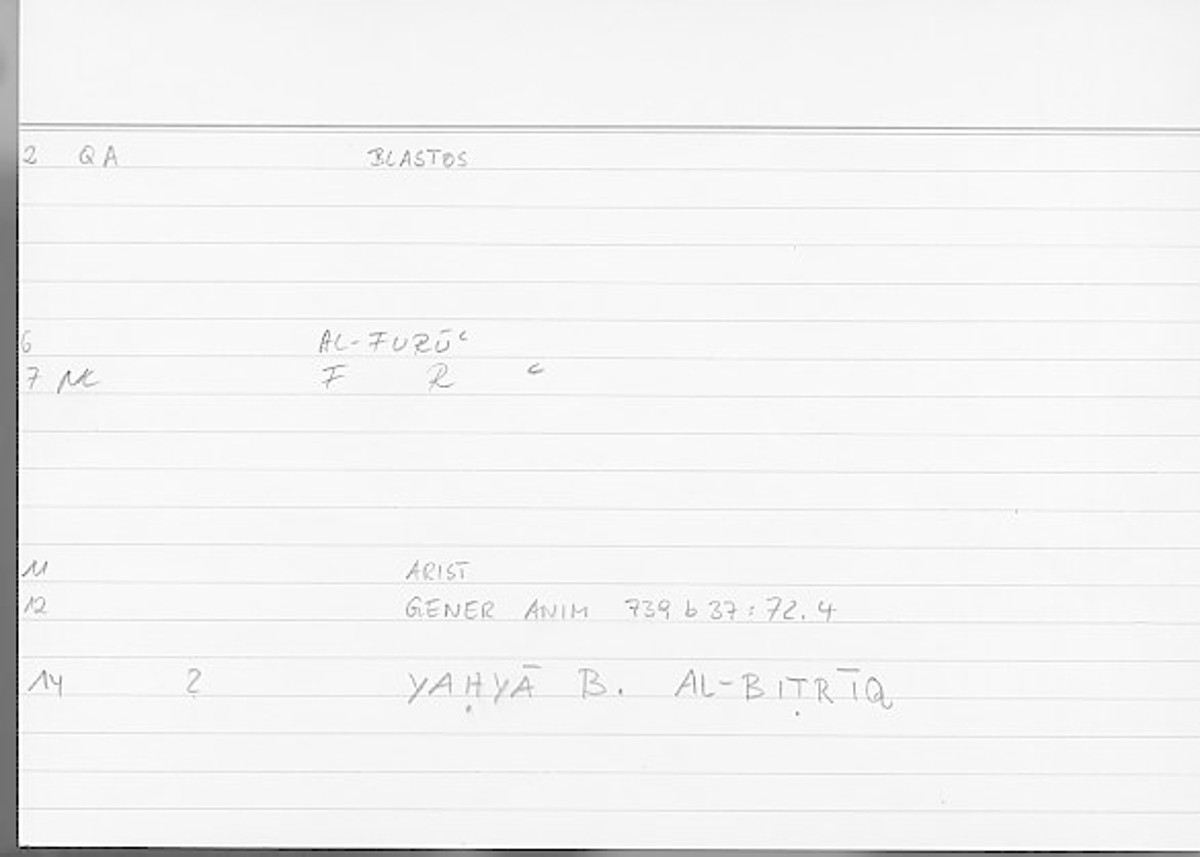 2 QA BLASTOS
6 AL-FURŪʿ
7 NC F R ʿ
11 ARIST
12 GENER ANIM 739 b 37 : 72.4
14 2 YAḤYĀ B. AL-BIṬRĪQ